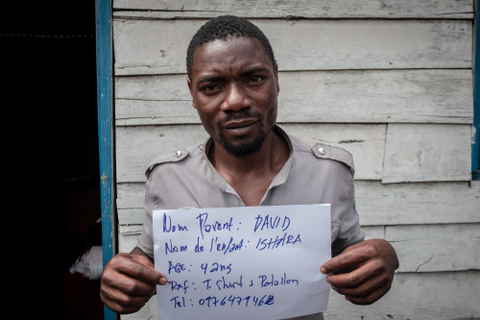 Nom Parent: DAVID
Nom de l'enfant: ISHARA
AGE: 4 ans
Ref: T Shirt & Patallon
Tel: 0976471462